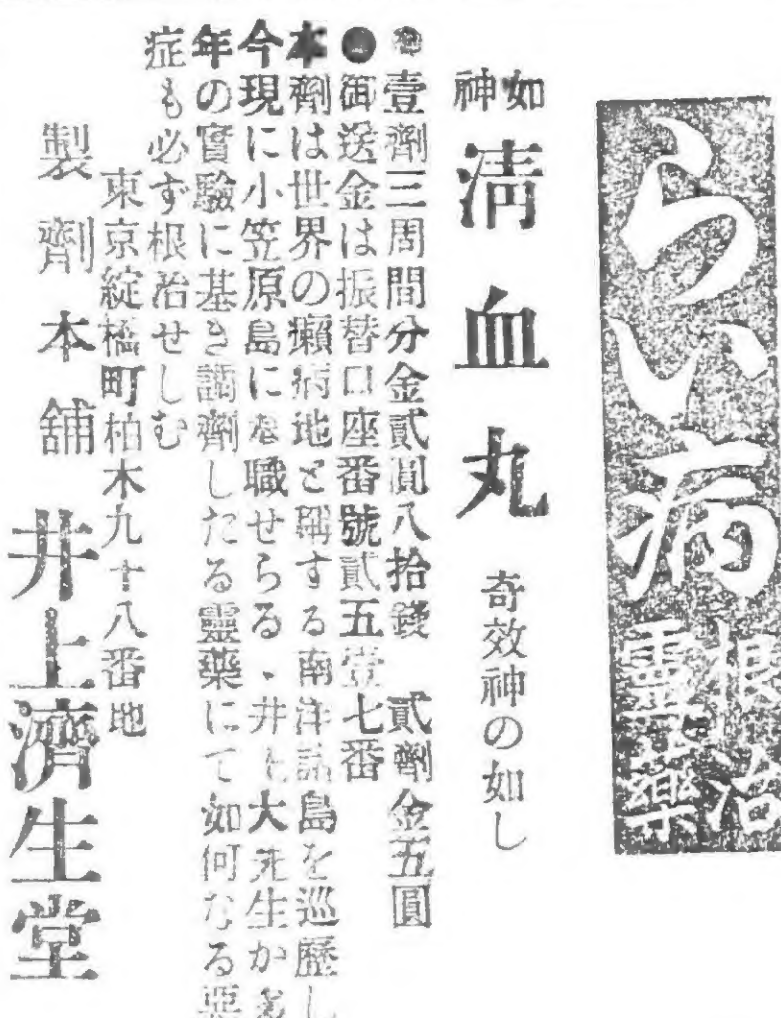 らい病
根治
靈藥
如神
淸血丸
奇效神の如し
●壹劑三周間分金貳圓八拾錢　貳劑金五圓
●御送金は振替口座番號貳五壹七番
本劑は世界の癩病地と稱する南洋諸島を巡歷し
今現に小笠原島に在職せらる、井上大先生が多
年の實驗に基き調劑したる靈藥にて如何なる惡
症も必ず根治せしむ
東京淀橋町柏木九十八番地
製劑本舖　井上濟生堂